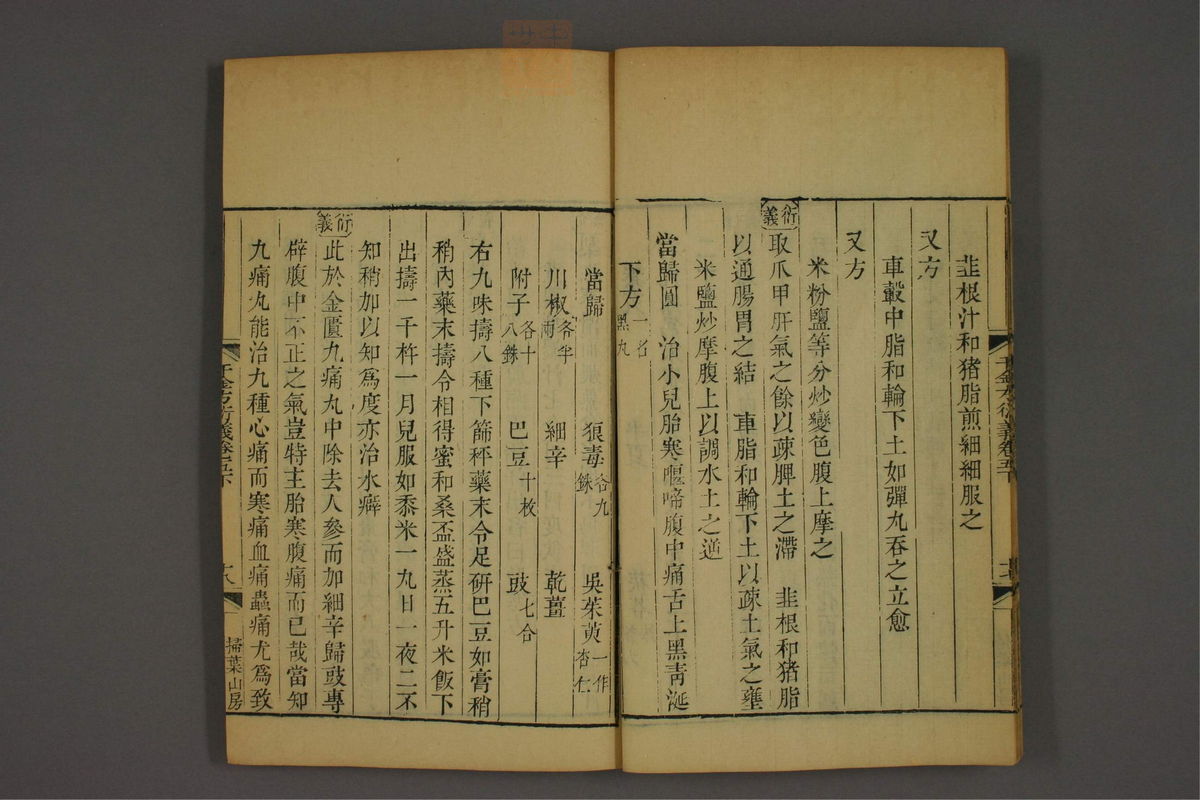 韭根汁和猪脂煎細細服之
又方
車轂中脂和輪下土如彈丸吞之立愈
又方
米粉鹽等分炒變色腹上摩之
衍義
取爪甲肝氣之餘以疎脾土之滯 韭根和猪脂
以通腸胃之結 車脂和輪下土以疎土氣之壅
米鹽炒摩腹上以調水土之逆
當歸圓 治小兒胎寒𠹀啼腹中痛舌上黑靑涎
下方一名黑丸
當歸 狼毒各九銖 吳茱萸一作杏仁
川椒各半兩 細辛 乾薑
附子各十八銖 巴豆十枚 豉七合
右九味擣八種下篩秤藥末令足硏巴豆如膏稍
稍內藥末擣令相得蜜和桑盃盛蒸五升米飯下
出擣一千杵一月兒服如黍米一丸日一夜二不
知稍加以知爲度亦治水癖
衍義
此於金匱九痛丸中除去人參而加細辛歸豉專
辟腹中不正之氣豈特主胎寒腹痛而已哉當知
九痛丸能治九種心痛而寒痛血痛蟲痛尤爲致
千金方衍義卷五下
十八
掃葉山房